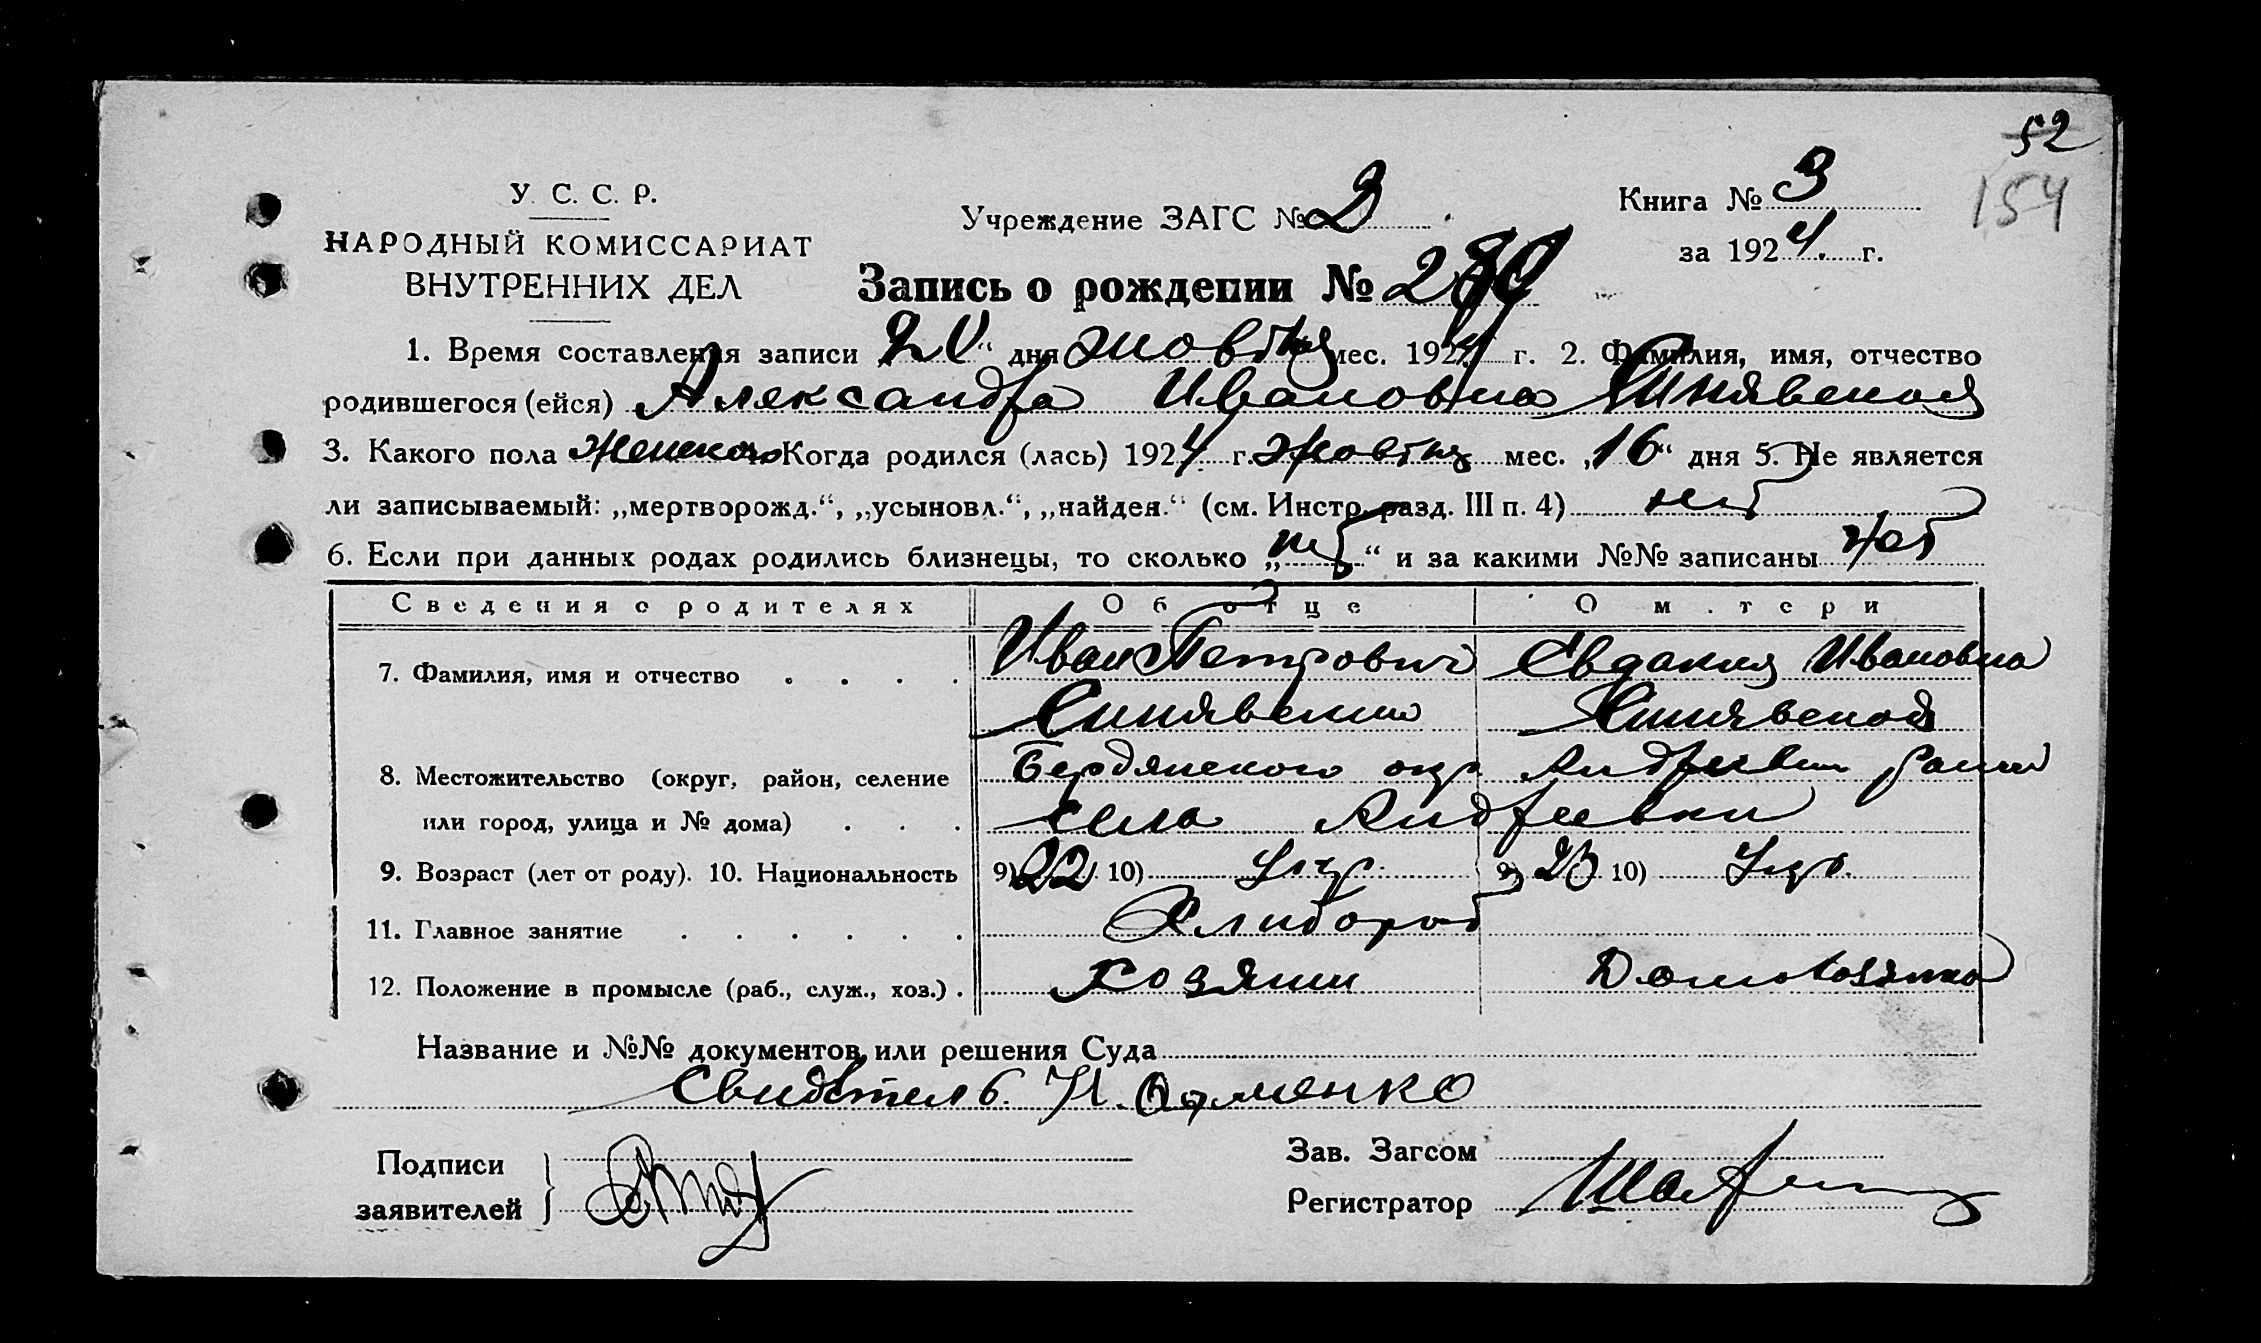 52
154
У. С. С. Р.
НАРОДНЫЙ КОМИССАРИАТ
ВНУТРЕННИХ ДЕЛ
Учреждение ЗАГС № 2
Книга № 3
за 1924 г.
Запись о рождении №
1. Время составления записи „ “ дня жовтня мес. 1924 г. 2. Фамилия, имя, отчество
родившегося (ейся) Александра Ивановна Синявская
3. Какого пола женского Когда родился (лась) 1924 г. жовтня мес. „16“ дня 5. Не является
ли записываемый: „мертворожд.“, „усыновл.“, „найден.“ (см. Инстр. разд. III п. 4) нет
6. Если при данных родах родились близнецы, то сколько „нет“ и за какими №№ записаны нет
Сведения о родителях Об отце О матери
7. Фамилия, имя и отчество . . . . Иван Петрович Евдакия Ивановна
Синявский Синявская
8. Местожительство (округ, район, селение Бердянского окр
или город, улица и № дома) . . . села Андреевки
9. Возраст (лет от роду). 10. Национальность 9) 22 10) Укр. 9) 10) Укр.
11. Главное занятие . . . . . . Хлибороб
12. Положение в промысле (раб., служ., хоз.) . Хозяин Домохозяйка
Название и №№ документов, или решения Суда
Свидетель
Подписи
заявителей
Зав. Загсом
Регистратор